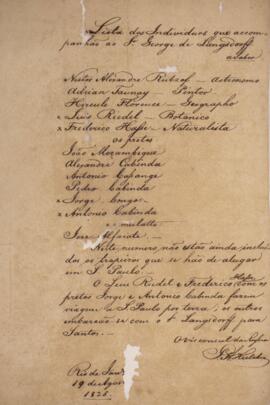 Lista dos Individuos que acom-
panhão ao Sr. George de Langsdorff
a saber
Nestor Alexandre Rubzof — Astronomo
Adrian Taunay — Pintor
Hercule Florence — Geographo
x Luis Riedel — Botanico
x Frederico Hasse — Naturalista
os pretos
João Mozambique
Alejandre Cabinda
Antonio Cabange
Pedro Cabinda
x Jorge Congo
x Antonio Cabinda
e o mulatto
José Alfaiate
Neste numero não estão ainda inclui-
dos os tropeiros que se hão de alugar
em S. Paulo.
O Snr Riedel e Frederico Hasse com os
pretos Jorge e Antonio Cabinda farão
viagem a S. Paulo por terra, os outros
embarcão-se com o Sr. Langsdorff para
Santos.
O Viceconsul da Russia
Rio de Jan
19 de Agos
1825.